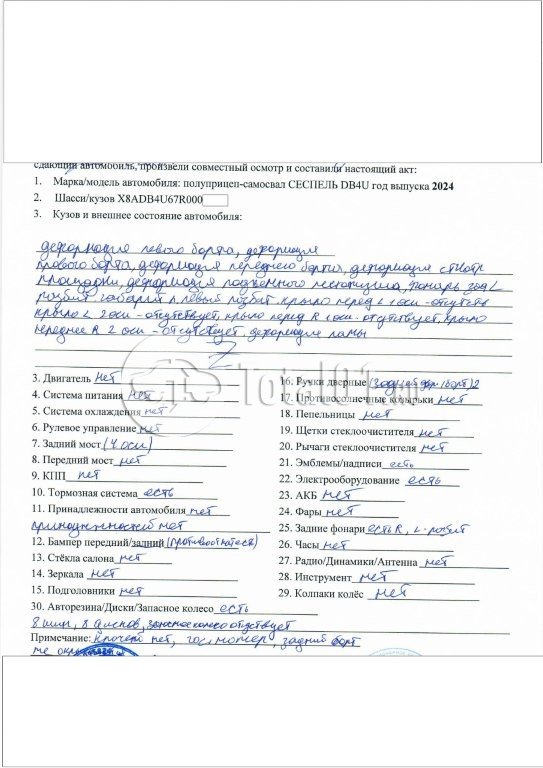 сдающий автомобиль, произвели совместный осмотр и составили настоящий акт:
1. Марка/модель автомобиля: полуприцеп-самосвал СЕСПЕЛЬ DB4U год выпуска 2024
2. Шасси/кузов X8ADB4U67R000
3. Кузов и внешнее состояние автомобиля:
деформация левого борта, деформация
правого борта, деформация переднего борта, деформация смотр
площадки, деформация подъемного механизма, фонарь зад L
разбит габарит п. левый разбит крыло перед L 1 оси - отсутств
крыло L 2 оси - отсутствует, крыло перед R 1 оси - отсутствует, крыло
переднее R 2 оси - отсутствует, деформация рамы
Total01
3. Двигатель нет
4. Система питания нет
5. Система охлаждения нет
6. Рулевое управление нет
7. Задний мост (4 оси)
8. Передний мост нет
9. КПП нет
10. Тормозная система есть
11. Принадлежности автомобиля нет
принадлежностей нет
12. Бампер передний/задний (противооткатея)
13. Стёкла салона нет
14. Зеркала нет
15. Подголовники нет
16. Ручки дверные (зад борт) 2
17. Противосолнечные козырьки нет
18. Пепельницы нет
19. Щетки стеклоочистителя нет
20. Рычаги стеклоочистителя нет
21. Эмблемы/надписи есть
22. Электрооборудование есть
23. АКБ нет
24. Фары нет
25. Задние фонари есть R, L - разбит
26. Часы нет
27. Радио/Динамики/Антенна нет
28. Инструмент нет
29. Колпаки колёс нет
30. Авторезина/Диски/Запасное колесо есть
8 шин, 8 дисков, запасное колесо отсутствует
Примечание: Ключей нет, гос. номер, задний борт
не